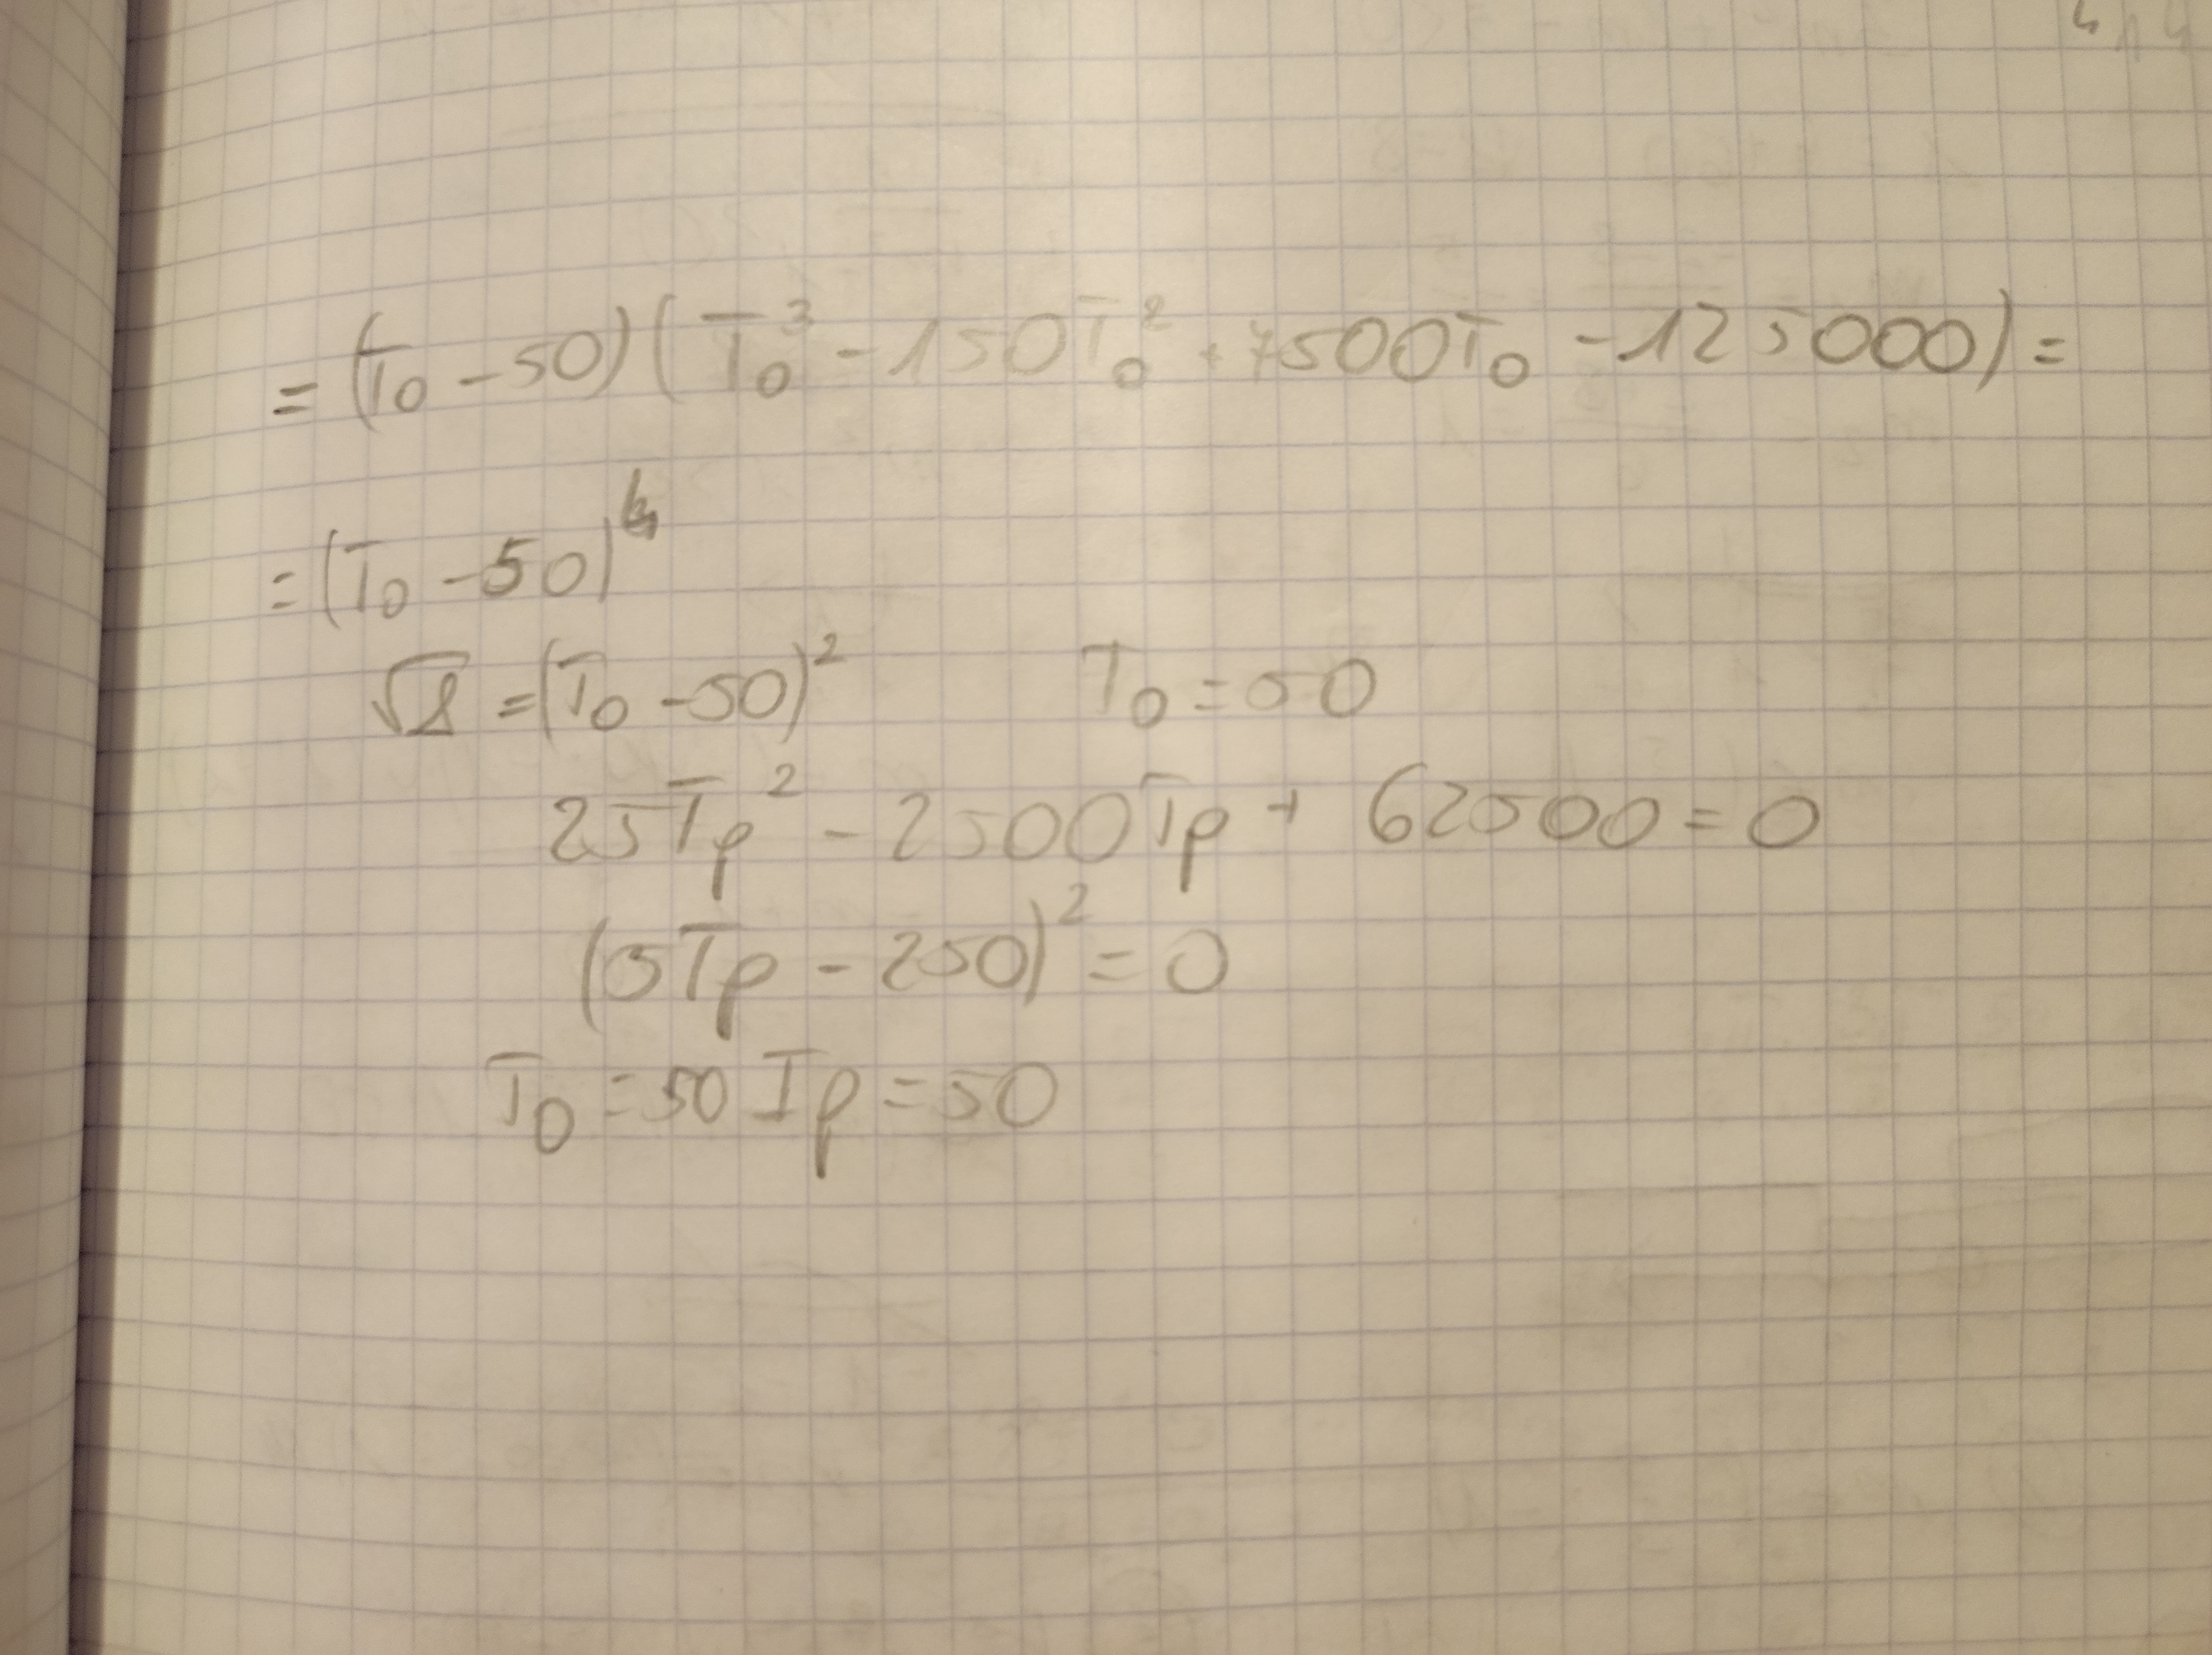 = (T₀ - 50)(T₀³ - 150T₀² + 7500T₀ - 125000) =
= (T₀ - 50)⁴
√Δ = (T₀ - 50)² T₀ = 50
25Tp² - 2500Tp + 62500 = 0
(5Tp - 250)² = 0
T₀ = 50 Tp = 50